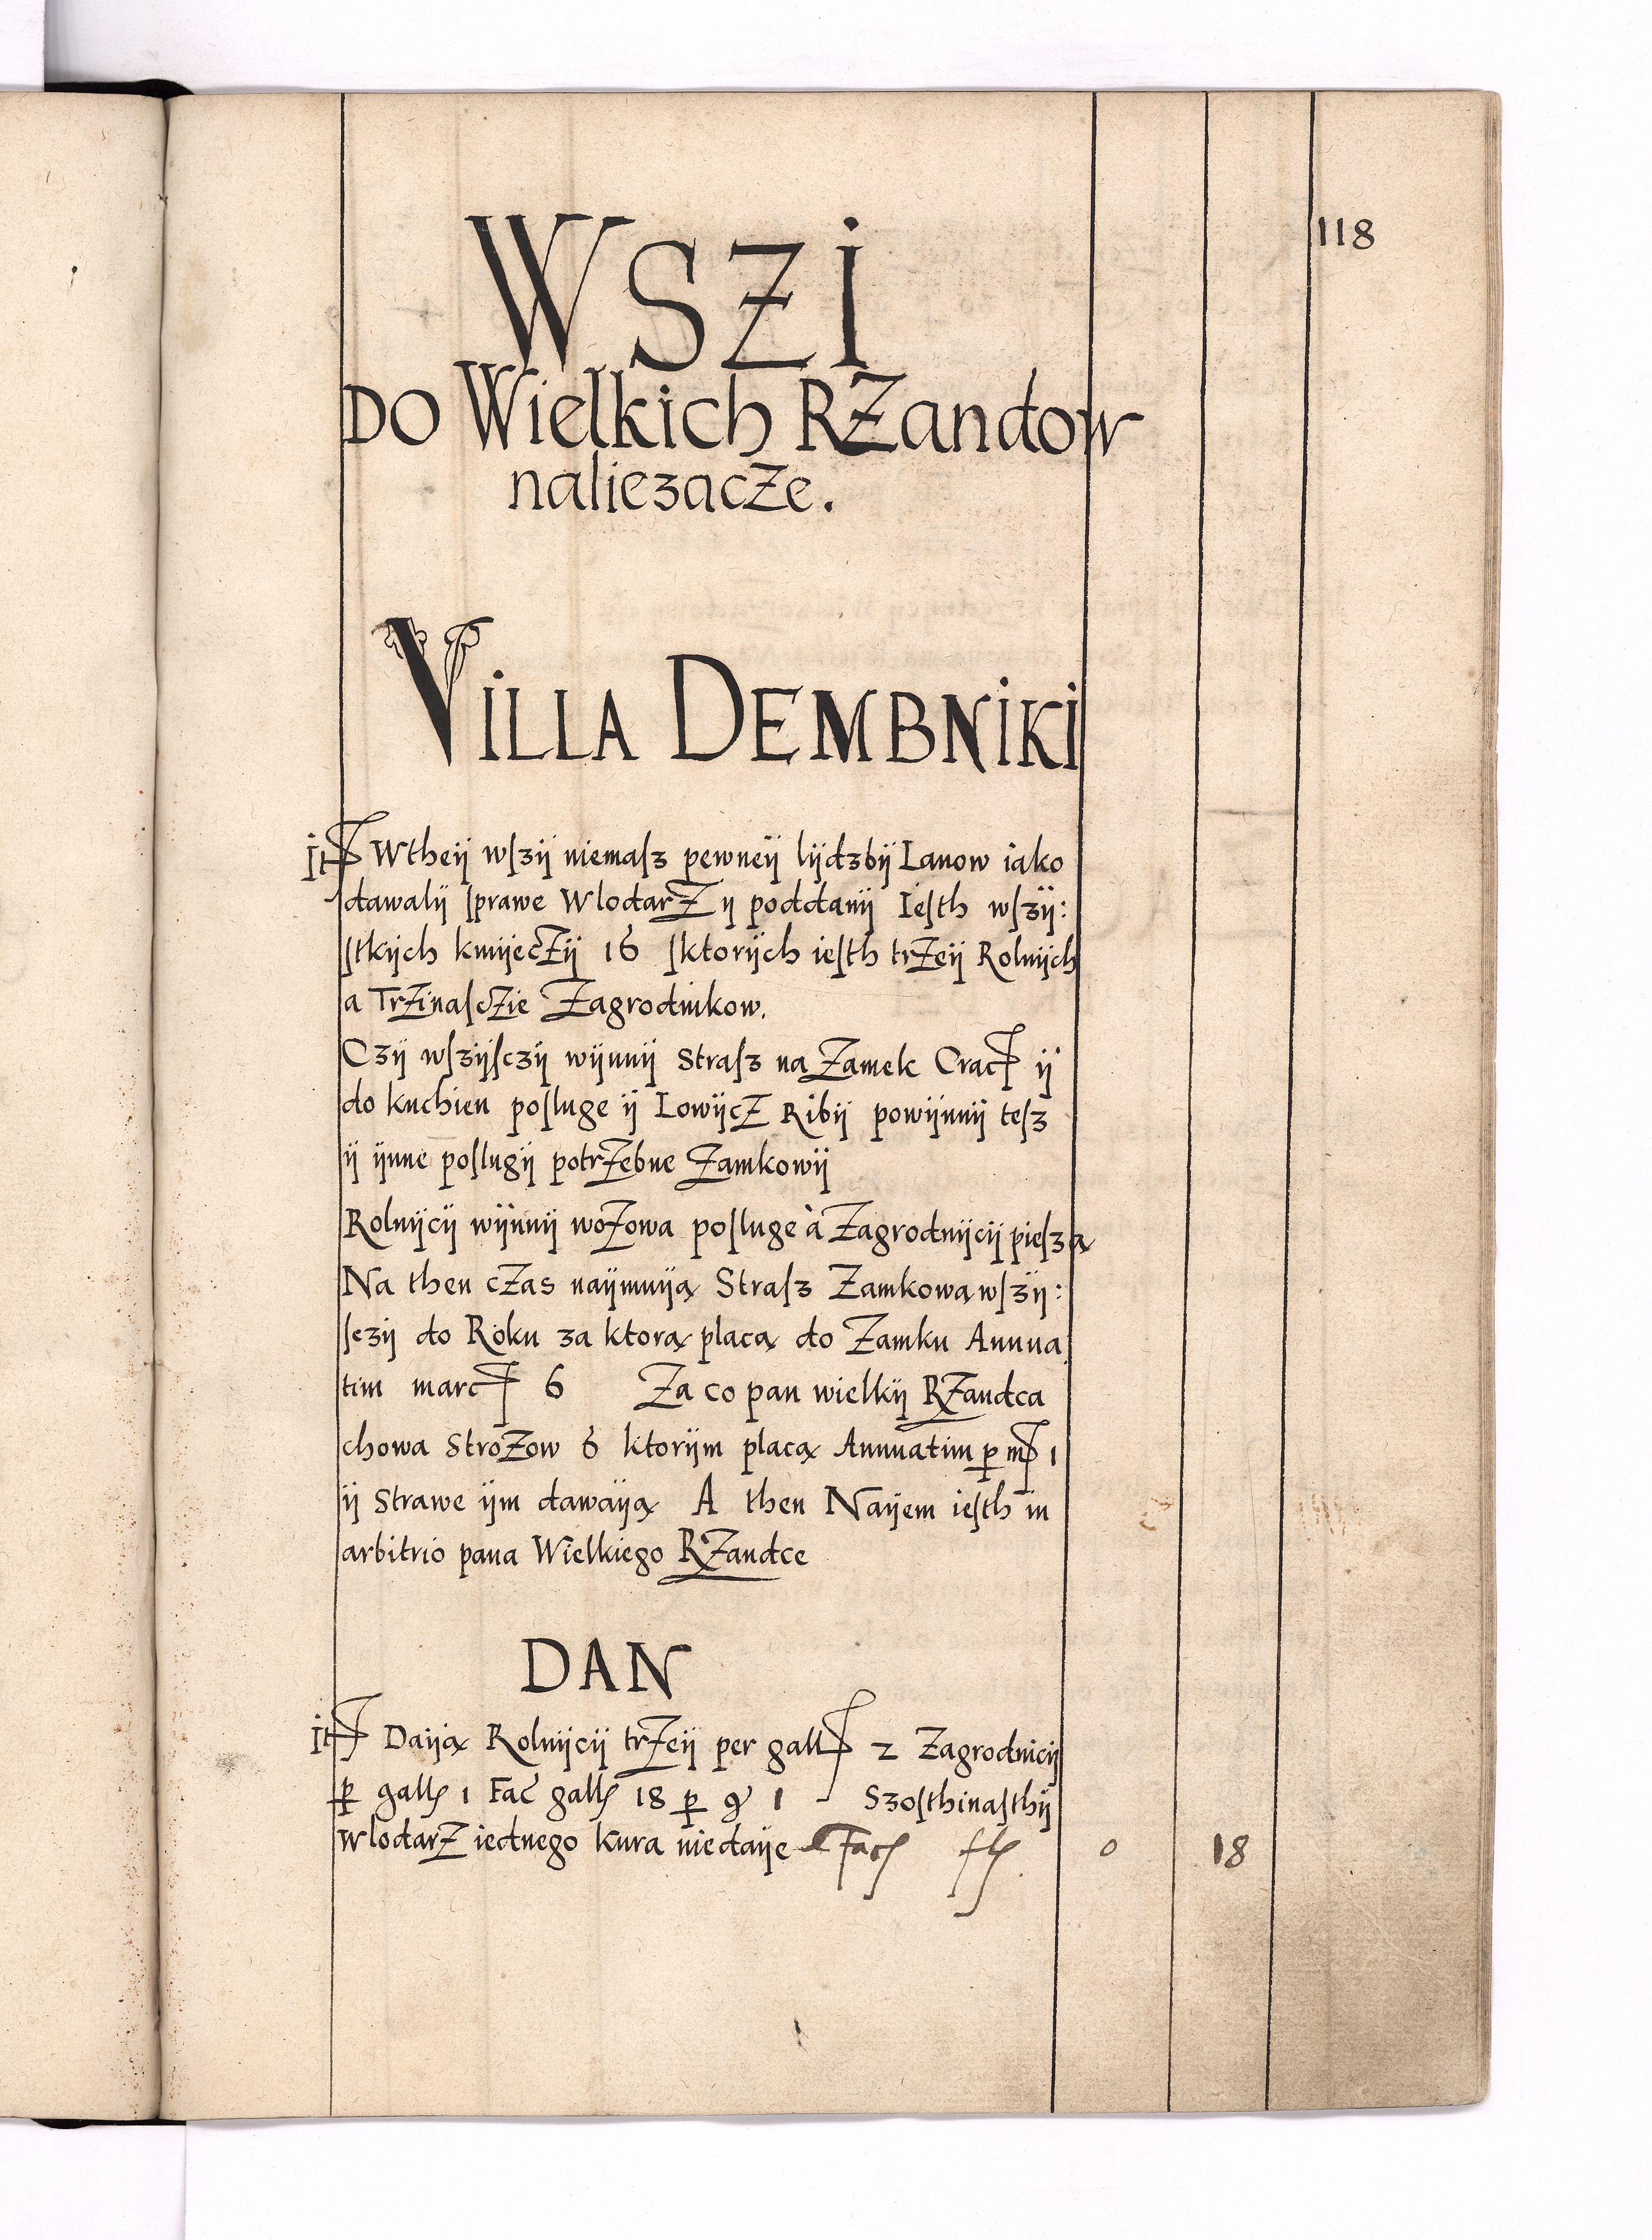 118
WSZi
DO Wielkich RZandow
naliezacZe.
ViLLA DEMBNiKi
It Wtheÿ wſzÿ niemaſz pewneÿ lÿdzbÿ Lanow iako
dawalÿ ſprawe WlodarZ ÿ poddanÿ Ieſth wſzÿ:
ſtkÿch kmÿeczÿ 16 ſktorÿch ieſth trZeÿ Rolnÿch
a TrZinaſcZie Zagrodnikow.
Czÿ wſzÿſczÿ wÿnnÿ Straſz na Zamek Crac ÿ
do kuchien poſluge ÿ LowÿcZ Ribÿ powÿnnÿ teſz
ÿ ÿnne poſlugÿ potrZebne Zamkowÿ
Rolnÿcÿ wÿnnÿ woZowa poſluge à Zagrodnÿcÿ pieſzą
Na then cZas naÿmuÿą Straſz Zamkową wſzÿ:
ſczÿ do Roku za ktorą placą do Zamku Annua
tim marc 6 Za co pan wielkÿ RZandca
chowa StroZow 6 ktorÿm placą Annuatim p m 1
ÿ Strawe ÿm dawaÿą A then Naÿem ieſth in
arbitrio pana Wielkiego RZandce
DAN
It Daÿą Rolnÿcÿ trZeÿ per gall 2 Zagrodnicÿ
p gall 1 Fac gall 18 p gr 1 - Szoſthinaſthÿ
WlodarZ iednego kura niedaÿe Fac fl 0 18